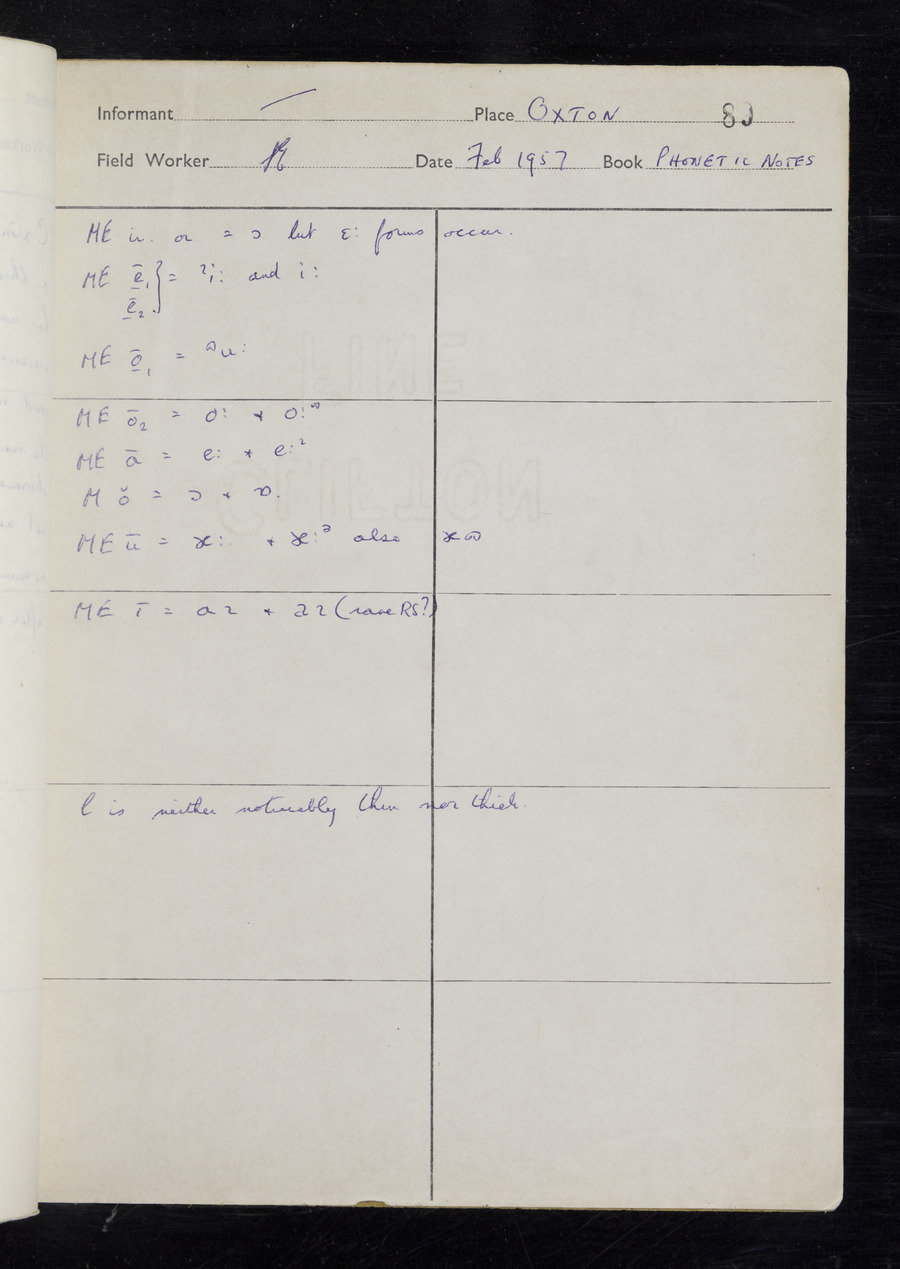 Informant — Place OXTON 80
Field Worker Date Feb 1957 Book PHONETIC NOTES
ME ir. or = ɔ but ɛ: forms occur.
ME ẹ̄₁ } = ɪi: and i:
ẹ̄₂
ME ọ̄₁ = ᷽u:
ME ō₂ = o: + o:ᶷ
ME ā = e: + e:ᶦ
M ŏ = ɔ + ɒ.
ME ū = æ: + æ:ᵊ also æɷ
ME ī = aɪ + aɪ (rare RS?)
l is neither noticeably thin nor thick.